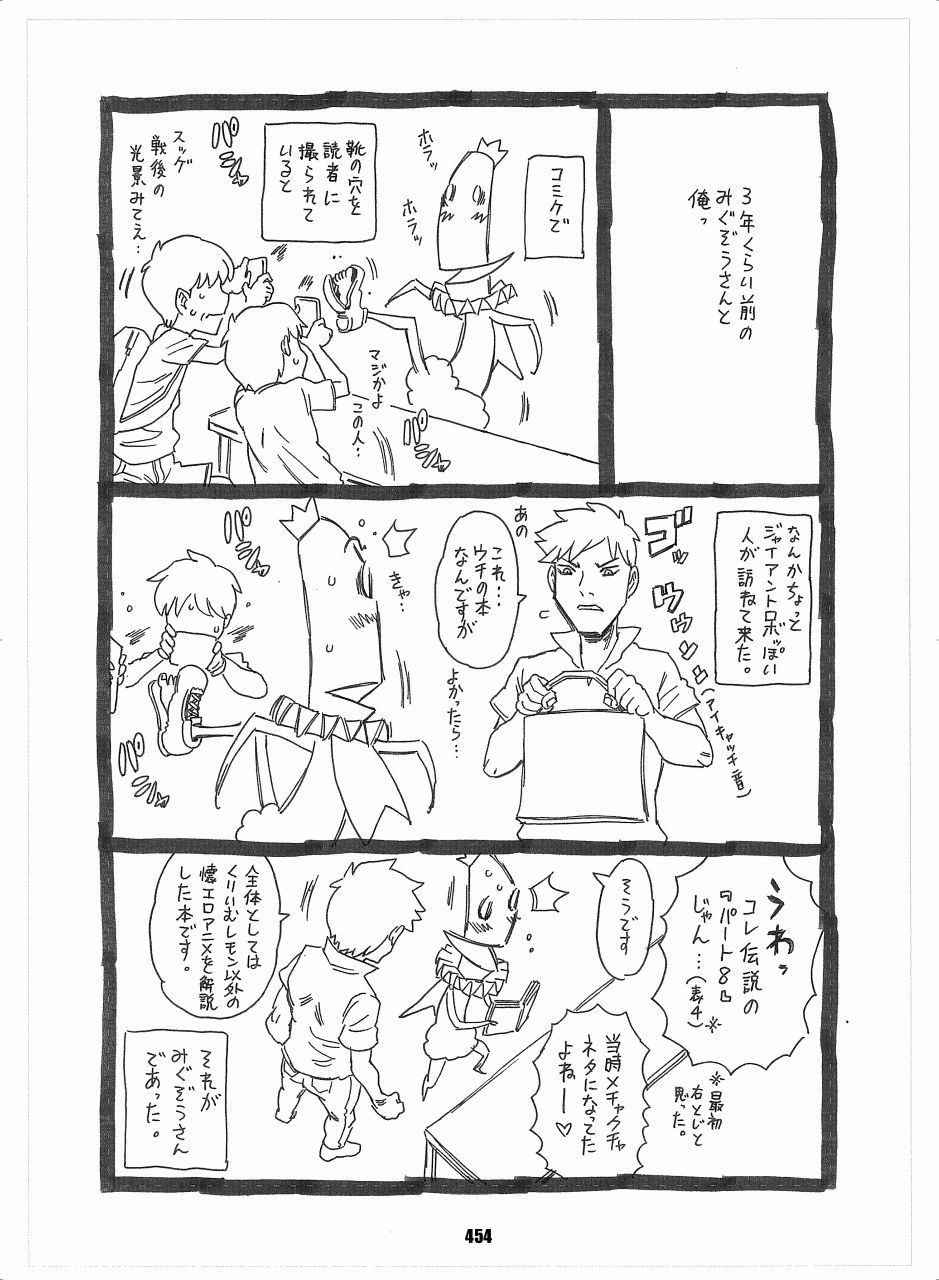 3年くらい前の
みぐぞうさんと
俺っ
コミケで
ホラッ
ホラッ
靴の穴を
読者に
撮られて
いると
パシャ
スッゲ
戦後の
光景みてえ…
マジかよ
この人…
パシャ
なんかちょっと
ジャイアントロボッぽい
人が訪ねて来た。
ゴッ
ウゥゥンン
(アイキャッチ音)
あの
これ…
ウチの本
なんですが
よかったら…
きゃ…
パシャ
パシャ
うわっ
コレ伝説の
『パート8』
じゃん…(表4)※
※最初
右とじと
思った。
そうです
当時メチャクチャ
ネタになってた
よねー♡
全体としては
くりいむレモン以外の
懐エロアニメを解説
した本です。
それが
みぐぞうさん
であった。
454